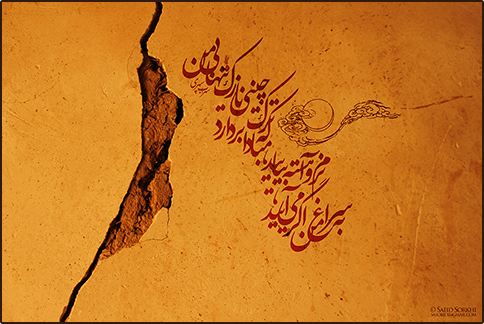 به سراغ من اگر می آیید
نرم و آهسته بیایید
مبادا که ترک بردارد
چینی نازک تنهایی من
سهراب سپهری
© SAEID SORKHI